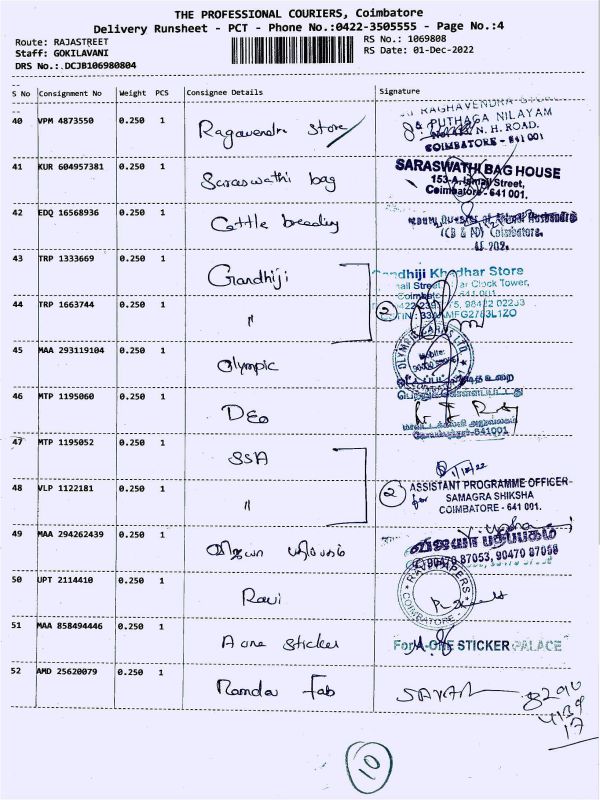 THE PROFESSIONAL COURIERS, Coimbatore
Delivery Runsheet - PCT - Phone No.:0422-3505555 - Page No.:4
Route: RAJASTREET
RS No.: 1069808
Staff: GOKILAVANI
RS Date: 01-Dec-2022
DRS No.:.DCJB106980804
S No Consignment No Weight PCS Consignee Details Signature
40 VPM 4873550 0.250 1 Ragavendra Store
RAGHAVENDRA
PUTHAGA NILAYAM
N. H. ROAD.
COIMBATORE - 641 001
41 KUR 604957381 0.250 1 Saraswathi bag
SARASWATHI BAG HOUSE
153-A, Ismail Street,
Coimbatore-641 001.
42 EDQ 16568936 0.250 1 Cattle breeding
(CB & FD) Coimbatore.
43 TRP 1333669 0.250 1 Gandhiji
Khadhar Store
Clock Tower,
44 TRP 1663744 0.250 1 "
2
45 MAA 293119104 0.250 1 Olympic
OLYMPIC CARDS LTD
Mobile:
46 MTP 1195060 0.250 1 DEO
641001
47 MTP 1195052 0.250 1 SSA
1/12/22
48 VLP 1122181 0.250 1 "
2
ASSISTANT PROGRAMME OFFICER
for SAMAGRA SHIKSHA
COIMBATORE - 641 001.
49 MAA 294262439 0.250 1 விஜயா பதிப்பகம்
விஜயா பதிப்பகம்
87053, 90470 87058
50 UPT 2114410 0.250 1 Ravi
RAVI PAPERS
COIMBATORE
51 MAA 858494446 0.250 1 A one sticker
For A-ONE STICKER PALACE
52 AMD 25620079 0.250 1 Ramdar Fab
8290
4139
17
10